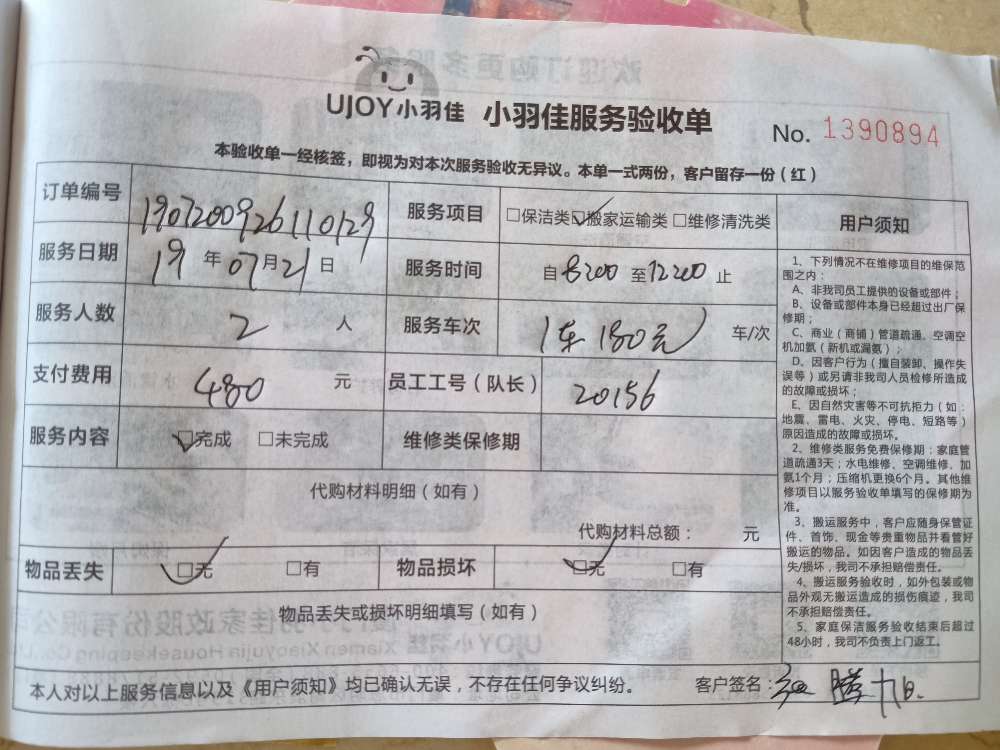 UJOY小羽佳 小羽佳服务验收单 No. 1390894
本验收单一经核签，即视为对本次服务验收无异议。本单一式两份，客户留存一份（红）
订单编号 190720092611029 服务项目 □保洁类☑搬家运输类□维修清洗类
服务日期 19年07月21日 服务时间 自8:00至12:00止
服务人数 2人 服务车次 1车180元 车/次
支付费用 480元 员工工号（队长） 20156
服务内容 ☑完成 □未完成 维修类保修期
代购材料明细（如有）
代购材料总额： 元
物品丢失 ☑无 □有 物品损坏 ☑无 □有
物品丢失或损坏明细填写（如有）
本人对以上服务信息以及《用户须知》均已确认无误，不存在任何争议纠纷。 客户签名：
用户须知
1、下列情况不在维修项目的维保范
围之内：
A、非我司员工提供的设备或部件；
B、设备或部件本身已经超过出厂保
修期；
C、商业（商铺）管道疏通、空调空
机加氨（新机或漏氨）；
D、因客户行为（擅自装卸、操作失
误等）或另请非我司人员检修所造成
的故障或损坏；
E、因自然灾害等不可抗拒力（如：
地震、雷电、火灾、停电、短路等）
原因造成的故障或损坏。
2、维修类服务免费保修期：家庭管
道疏通3天；水电维修、空调维修、加
氨1个月；压缩机更换6个月。其他维
修项目以服务验收单填写的保修期为
准。
3、搬运服务中，客户应随身保管证
件、首饰、现金等贵重物品并看管好
搬运的物品。如因客户造成的物品丢
失/损坏，我司不承担赔偿责任。
4、搬运服务验收时，如外包装或物
品外观无搬运造成的损伤痕迹，我司
不承担赔偿责任。
5、家庭保洁服务验收结束后超过
48小时，我司不负责上门返工。